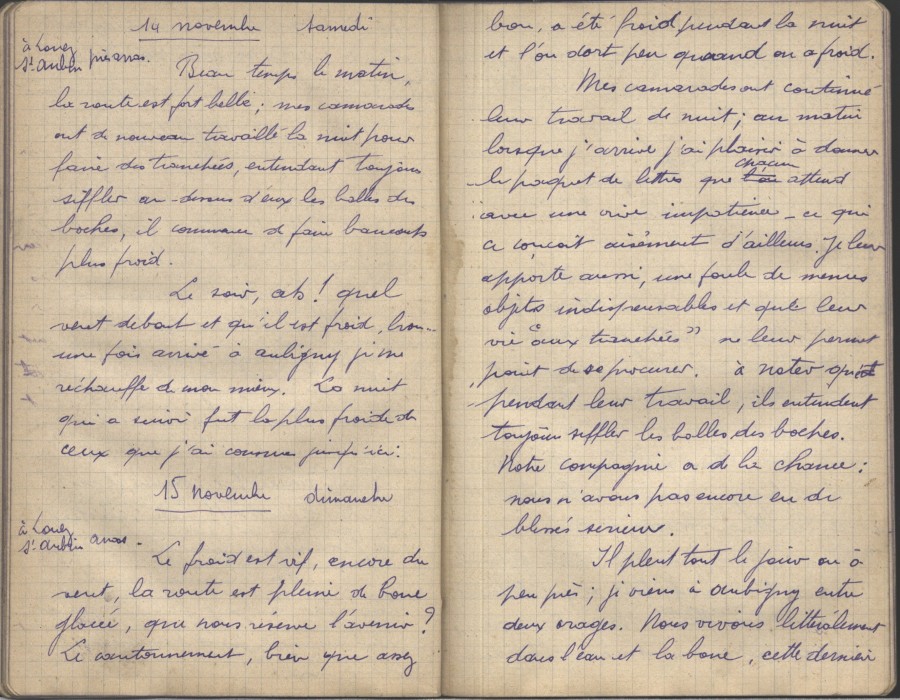 14 novembre samedi
à Louez
St. Aubin près arras.
Beau temps le matin,
la route est fort belle ; mes camarades
ont de nouveau travaillé la nuit pour
faire des tranchées, entendant toujours
siffler au-dessus d'eux les balles des
boches, il commence à faire beaucoup
plus froid.
Le soir, ah ! quel
vent debout et qu'il est froid, brou...
une fois arrivé à aubigny je me
réchauffe de mon mieux. La nuit
qui a suivi fut la plus froide de
ceux que j'ai connues jusqu'ici.
15 novembre dimanche
à Louez
St. Aubin arras.
Le froid est vif, encore du
vent, la route est pleine de boue
glacée, que nous réserve l'avenir ?
Le cantonnement, bien que assez
bon, a été froid pendant la nuit
et l'on dort peu quand on a froid.
Mes camarades ont continué
leur travail de nuit ; au matin
lorsque j'arrive j'ai plaisir à donner
le paquet de lettres que chacun attend
avec une vive impatience - ce qui
ce conçoit aisément d'ailleurs. Je leur
apporte aussi, une foule de menus
objets indispensables et que leur
vie "aux tranchées" ne leur permet
point de se procurer. à noter que
pendant leur travail, ils entendent
toujours siffler les balles des boches.
Notre compagnie a de la chance :
nous n'avons pas encore eu de
blessés serieux.
Il pleut tout le jour ou à
peu près ; je viens à aubigny entre
deux orages. Nous vivons littéralement
dans l'eau et la boue, cette dernière